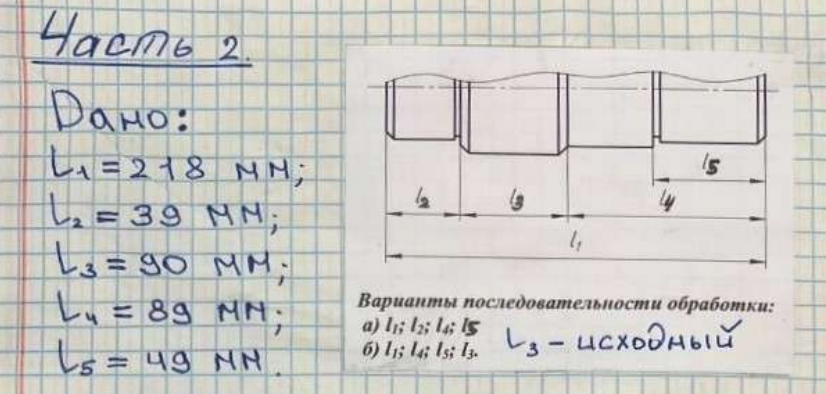 Часть 2.
Дано:
L₁ = 218 мм;
L₂ = 39 мм;
L₃ = 90 мм;
L₄ = 89 мм;
L₅ = 49 мм.
l5
l2
l3
l4
l₁
Варианты последовательности обработки:
а) l₁; l₂; l₄; l5
б) l₁; l₄; l₅; l₃.
L₃ - исходный